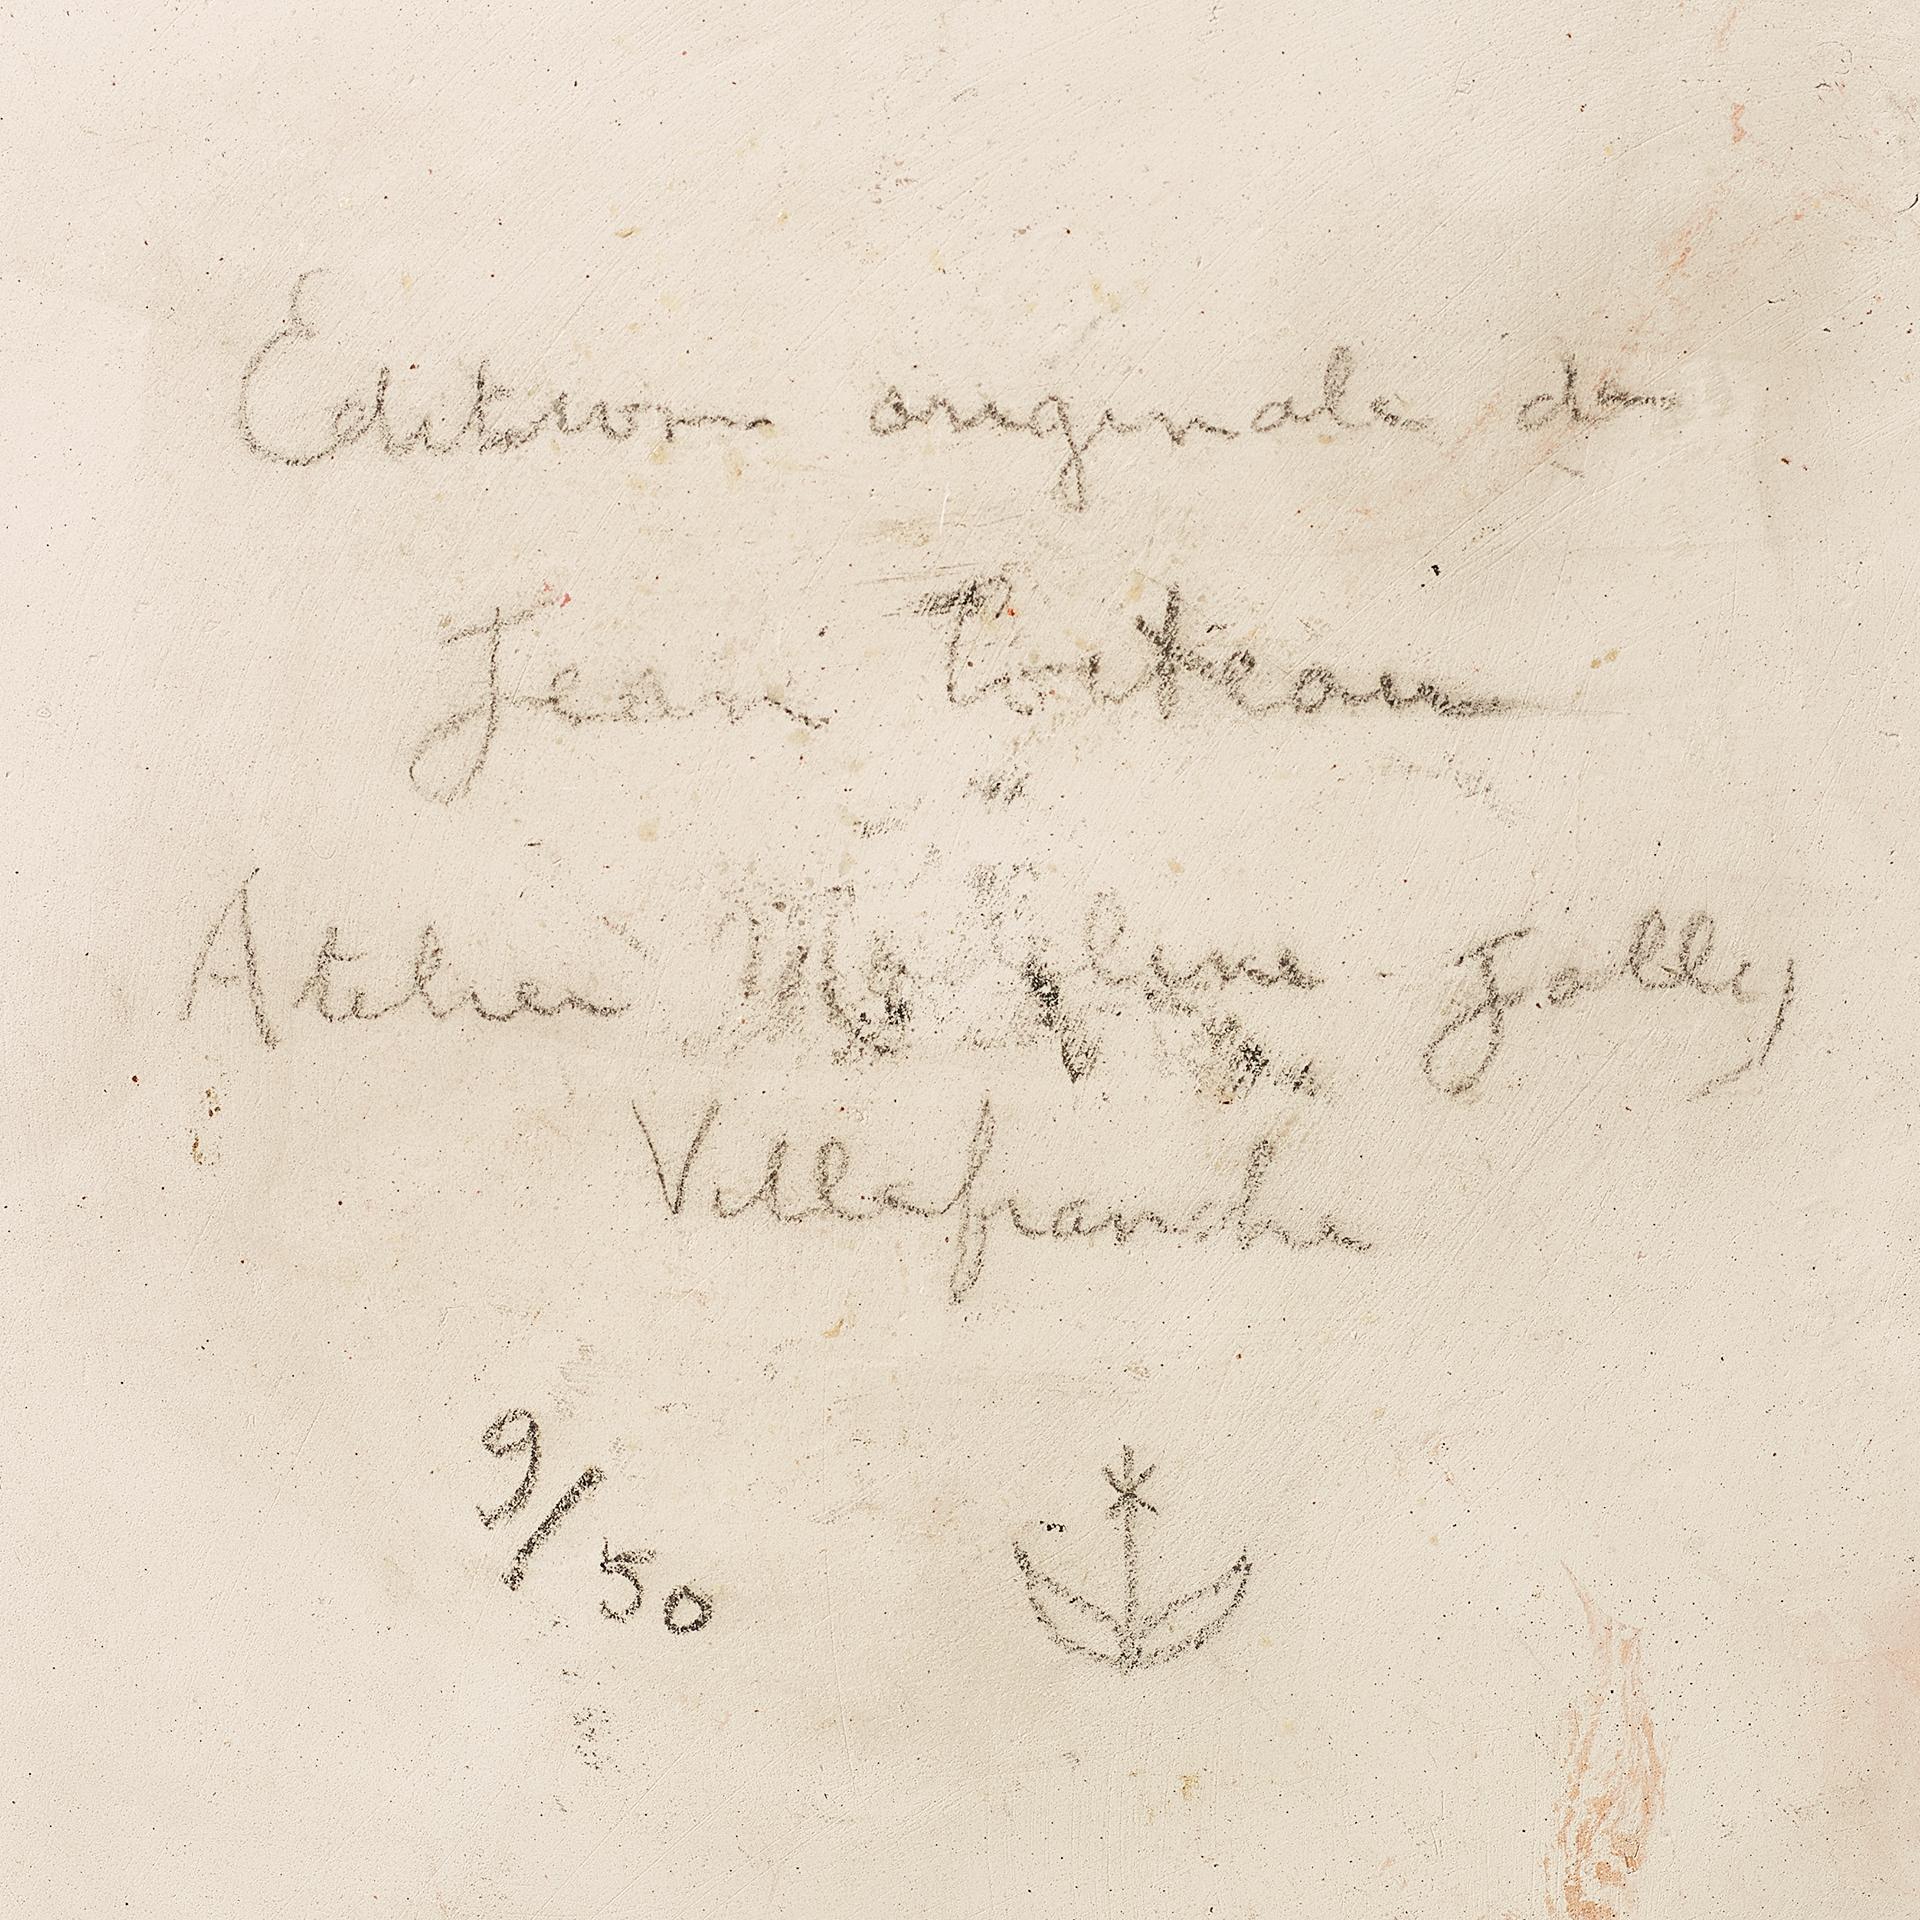 Edition originale de
Jean Cocteau
Atelier Madeline Jolly
Villefranche
9/50